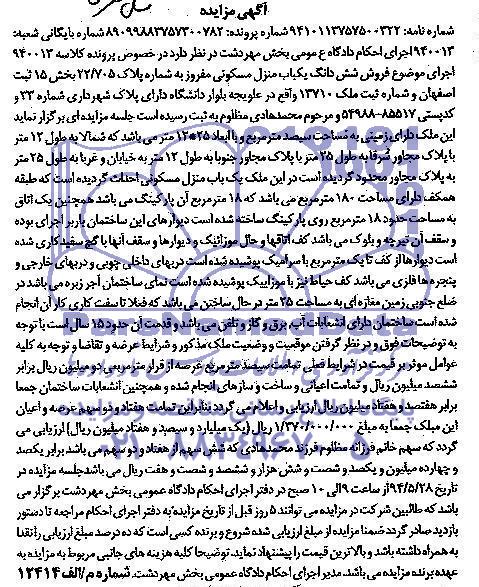 آگهی مزایده
شماره نامه: ۹۴۱۰۱۱۳۷۵۷۵۰۰۳۲۲ شماره پرونده: ۸۹۰۹۹۸۸۳۷۵۷۳۰۰۷۸۲ شماره بایگانی شعبه:
۹۴۰۰۱۳ اجرای احکام دادگاه عمومی بخش مهردشت در نظر دارد در خصوص پرونده کلاسه ۹۴۰۰۱۳
اجرای موضوع فروش شش دانگ یکباب منزل مسکونی مفروز به شماره پلاک ۲۲/۷۰۵ بخش ۱۵ ثبت
اصفهان و شماره ثبت ملک ۱۳۷۱۰ واقع در علویجه بلوار دانشگاه دارای پلاک شهرداری شماره ۳۳ و
کدپستی ۸۵۵۱۷-۵۴۹۸۸ و مرحوم محمدهادی مظلوم به ثبت رسیده است جلسه مزایده ای برگزار نماید
این ملک دارای زمینی به مساحت سیصد مترمربع و با ابعاد ۲۵*۱۲ متر می باشد که شمالا به طول ۱۲ متر
با پلاک مجاور شرقا به طول ۲۵ متر با پلاک مجاور جنوبا به طول ۱۲ متر به خیابان و غربا به طول ۲۵ متر
با پلاک مجاور محدود گردیده است در این ملک یک باب منزل مسکونی احداث گردیده است که طبقه
همکف دارای مساحت ۱۸۰ مترمربع می باشد که ۱۸ مترمربع آن پارکینگ می باشد همچنین یک اتاق
به مساحت حدود ۱۸ مترمربع روی پارکینگ ساخته شده است دیوارهای این ساختمان باربر اجرای بوده
و سقف آن تیرچه و بلوک می باشد کف اتاقها و حال موزائیک و دیوارها و سقف آنها با گچ سفیدکاری شده
است دیوارها از کف تا یک مترمربع با سرامیک پوشیده شده است دربهای داخلی چوبی و دربهای خارجی و
پنجره ها فلزی می باشد کف حیاط نیز با موزاییک پوشیده شده است نمای ساختمان آجر زبره می باشد در
ضلع جنوبی زمین مغازه ای به مساحت ۲۵ متر در حال ساختن می باشد که فعلا تا سفت کاری کار آن انجام
شده است ساختمان دارای انشعابات آب، برق و گاز و تلفن می باشد و قدمت آن حدود ۱۵ سال است با توجه
به توضیحات فوق و در نظر گرفتن موقعیت و وضعیت ملک مذکور و شرایط عرضه و تقاضا و توجه به کلیه
عوامل موثر بر قیمت در شرایط فعلی تمامت سیصد مترمربع عرصه از قرار مترمربعی دو میلیون ریال برابر
ششصد میلیون ریال و تمامت اعیانی و ساخت و سازهای انجام شده و همچنین انشعابات ساختمان جمعا
برابر هفتصد و هفتاد میلیون ریال ارزیابی و اعلام می گردد بنابراین تمامت هفتاد و دو سهم عرصه و اعیان
این ملک جمعا به مبلغ ۱/۳۷۰/۰۰۰/۰۰۰ ریال (یک میلیارد و سیصد و هفتاد میلیون ریال) ارزیابی می
گردد که سهم خانم فرزانه مظلوم فرزند محمدهادی که شش سهم از هفتاد و دو سهم می باشد برابر یکصد
و چهارده میلیون و یکصد و شصت و شش هزار و ششصد و شصت و هفت ریال می باشد جلسه مزایده در
تاریخ ۹۴/۵/۲۸ از ساعت ۹ الی ۱۰ صبح در دفتر اجرای احکام دادگاه عمومی بخش مهردشت برگزار می
باشد که طالبین شرکت در مزایده می توانند ۵ روز قبل از تاریخ مزایده به دفتر اجرای احکام مراجعه تا دستور
بازدید صادر گردد ضمنا مزایده از مبلغ ارزیابی شده شروع و برنده کسی است که ده درصد مبلغ ارزیابی را نقدا
به همراه داشته باشد و بالاترین قیمت را پیشنهاد نماید. توضیحا کلیه هزینه های جانبی مربوط به مزایده به
عهده برنده مزایده می باشد. مدیر اجرای احکام دادگاه عمومی بخش مهردشت. شماره م/الف ۱۲۴۱۴